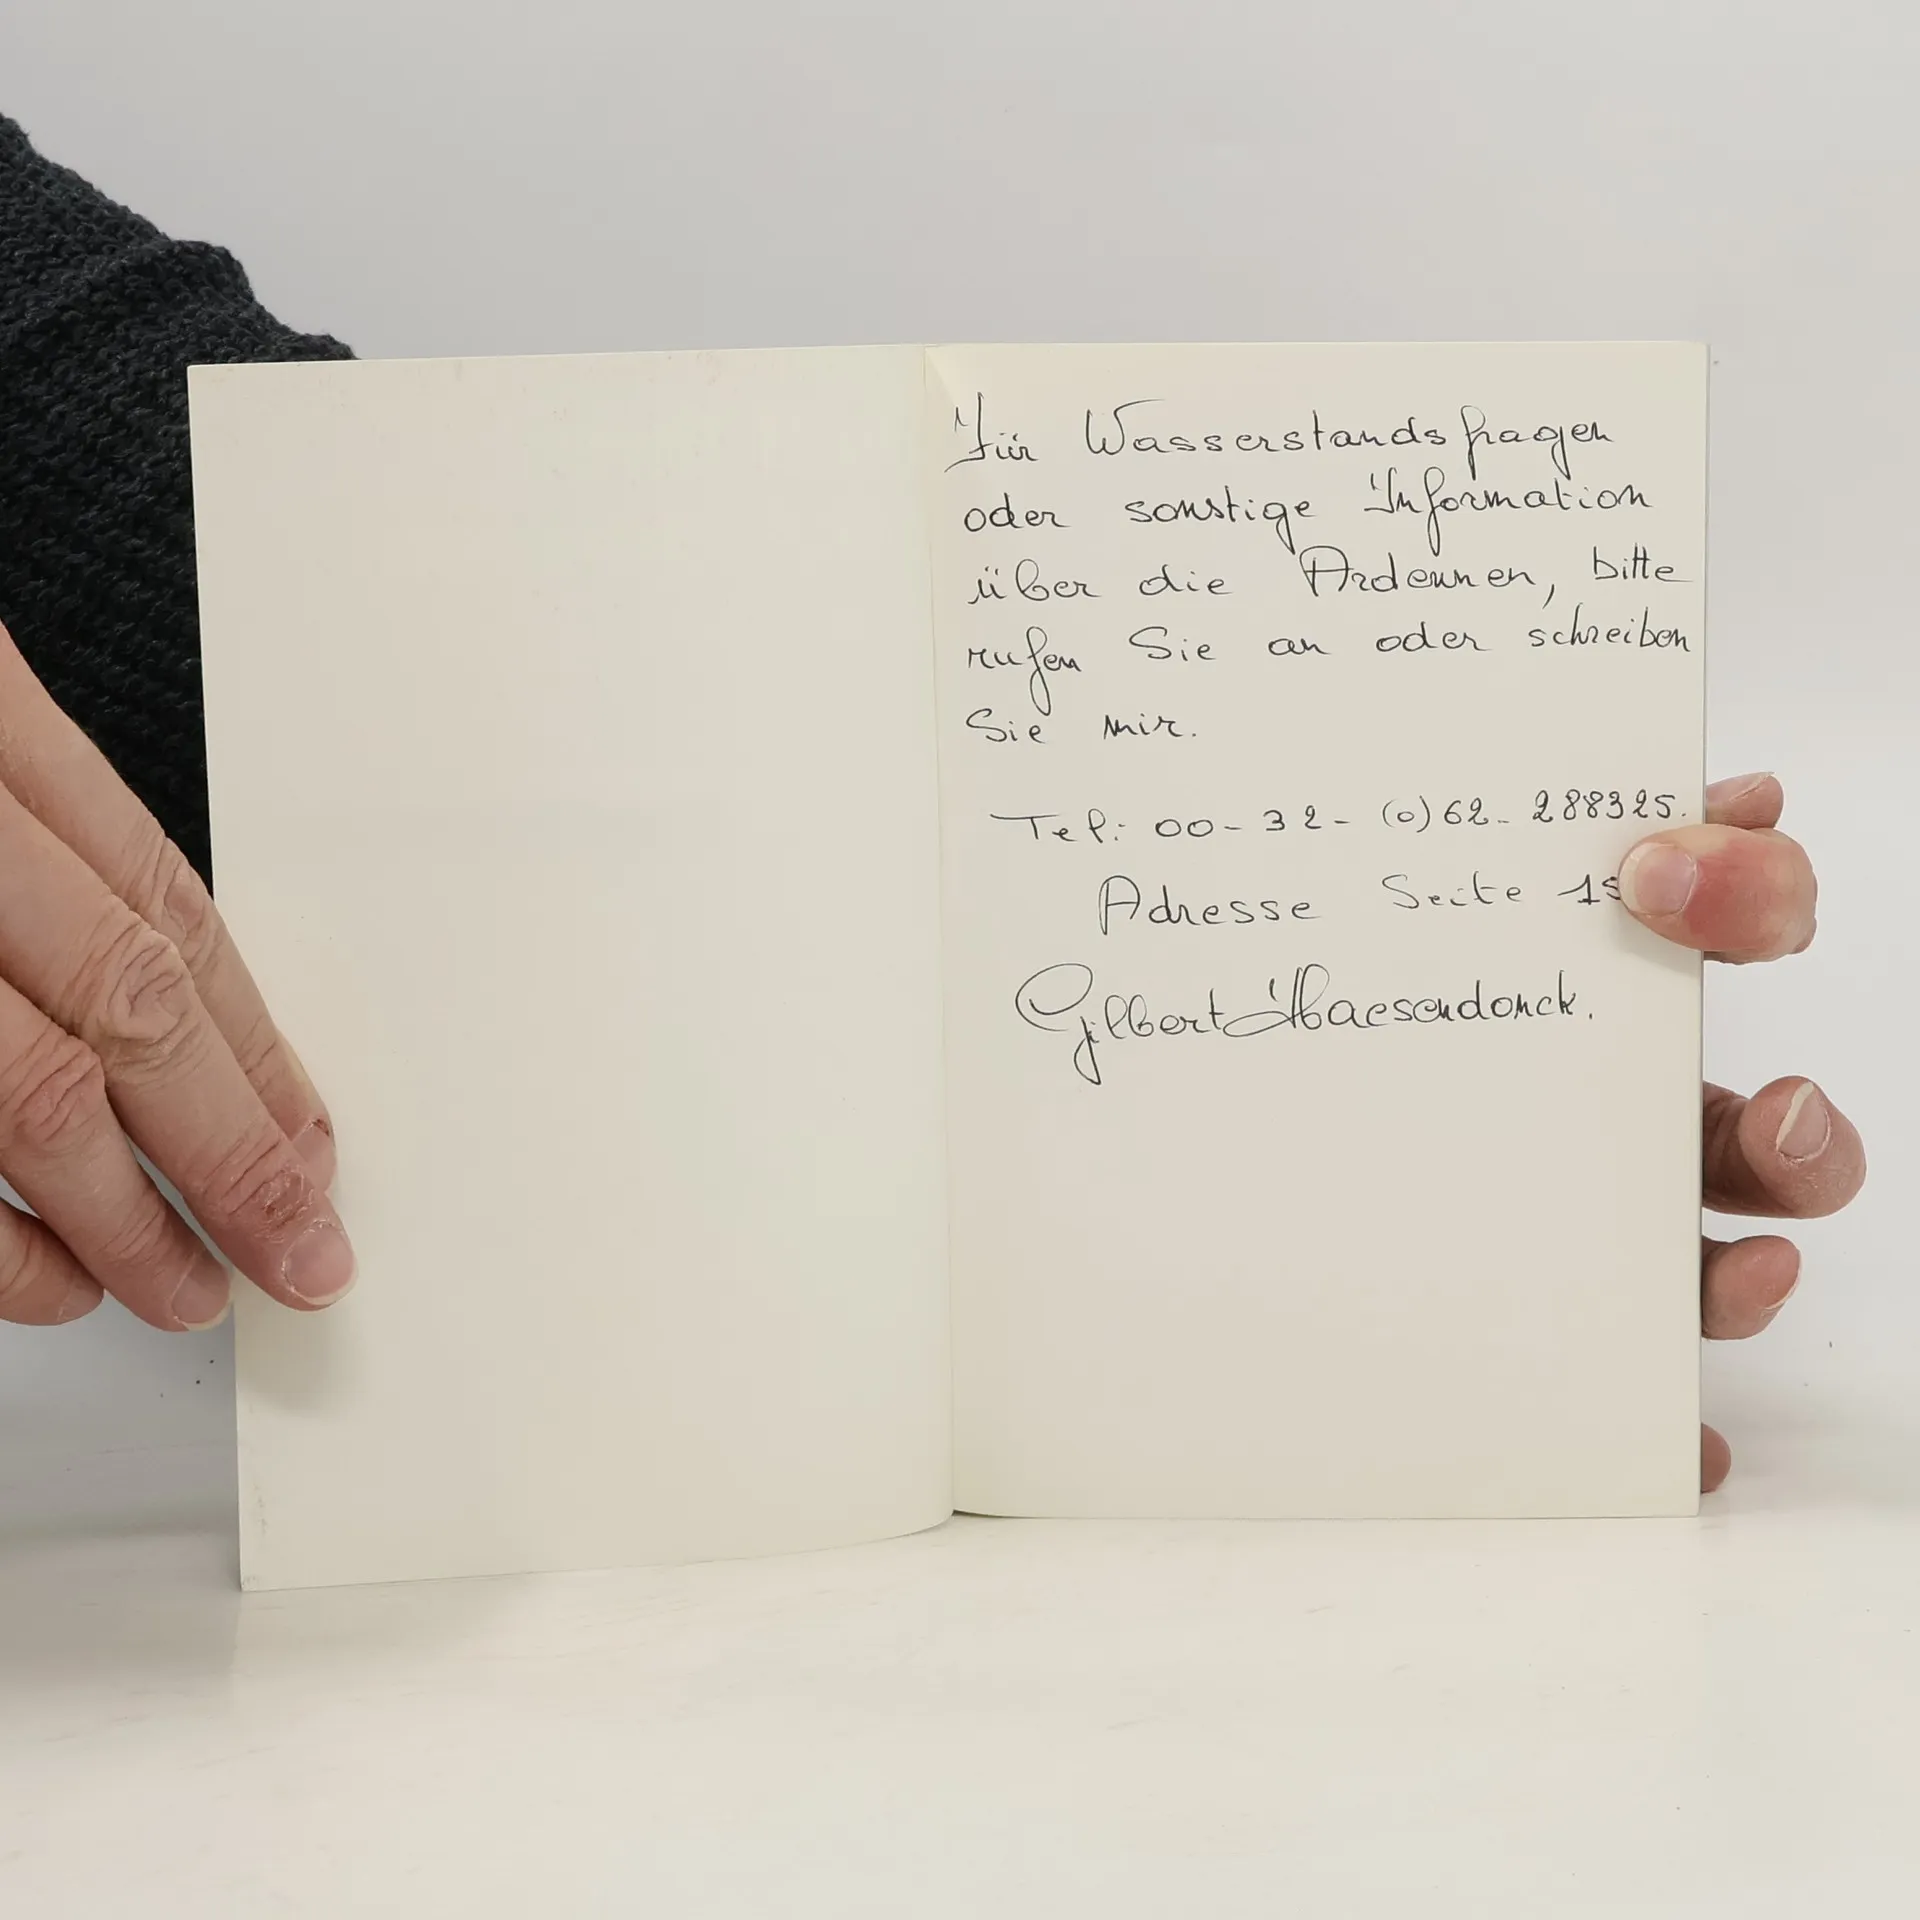 Für Wasserstandsfragen
oder sonstige Information
über die Ardennen, bitte
rufen Sie an oder schreiben
Sie mir.
Tel: 00-32-(0)62-288325.
Adresse Seite
Gilbert Haesendonck.